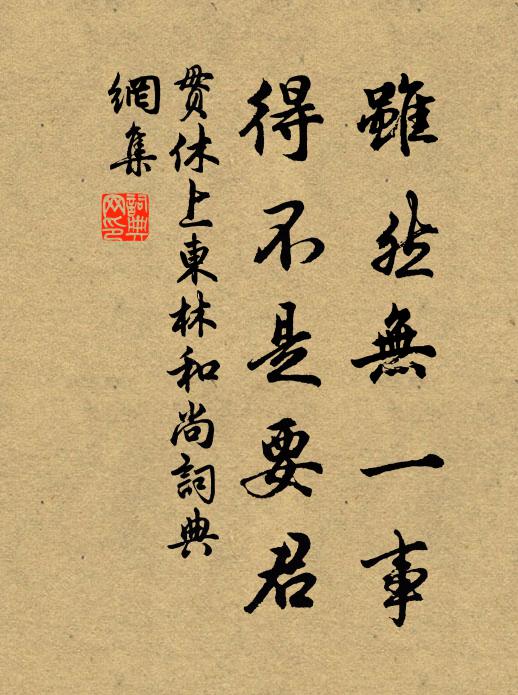 雖然無一事
得不是要君
貫休上東林和尚詞典
網集
詞典网印